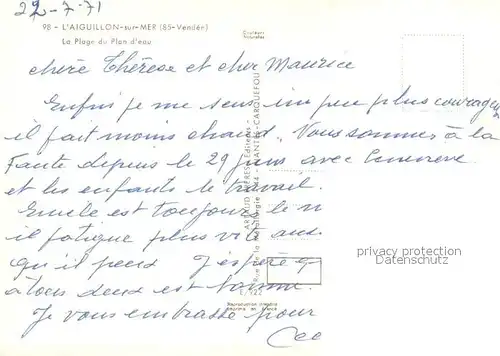 22-7-71
98 - L'AIGUILLON-sur-MER (85-Vendée)
La Plage du Plan d'eau
Couleurs
Naturelles
chère Thérèse et cher Maurice
Enfin je me sens un peu plus courageu
il fait moins chaud. Vous sommes à la
Faute depuis le 29 juin avec
et les enfants le travail.
Emile est toujours le m
il fatigue plus vite
qu'il peux J'espère q
a tous deux est bonne.
Je vous embrasse pour
ARTAUD FRÈRES, Éditeurs -
Rue de la Métallurgie 44 - NANTES-CARQUEFOU
E/922
Reproduction interdite
Imprimé en France
privacy protection
Datenschutz